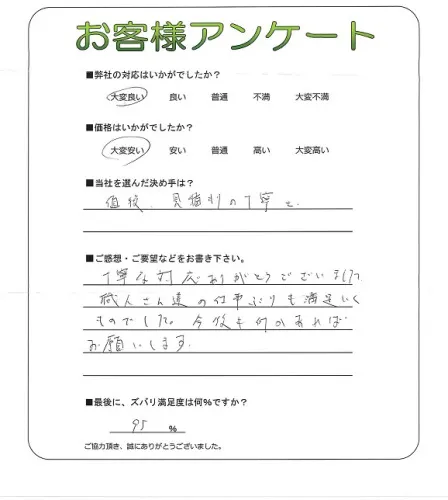 お客様アンケート
■弊社の対応はいかがでしたか？
大変良い 良い 普通 不満 大変不満
■価格はいかがでしたか？
大変安い 安い 普通 高い 大変高い
■当社を選んだ決め手は？
値段、見積りの丁寧さ
■ご感想・ご要望などをお書き下さい。
丁寧な対応ありがとうございました。
職人さん達の仕事ぶりも満足いく
ものでした。今後も何かあれば
お願いします。
■最後に、ズバリ満足度は何％ですか？
95 ％
ご協力頂き、誠にありがとうございました。